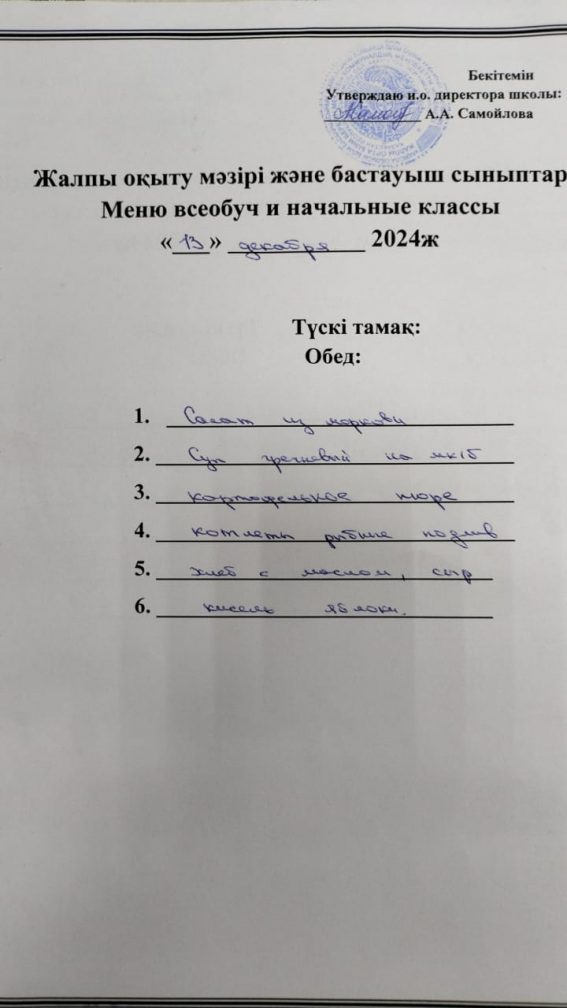 Бекітемін
Утверждаю и.о. директора школы:
А.А. Самойлова
Жалпы оқыту мәзірі және бастауыш сыныптар
Меню всеобуч и начальные классы
«13» декабря 2024ж
Түскі тамақ:
Обед:
1. Салат из моркови
2. Суп гречневый на мк/б
3. картофельное пюре
4. котлеты рыбные подлив
5. хлеб с маслом, сыр
6. кисель яблоки.